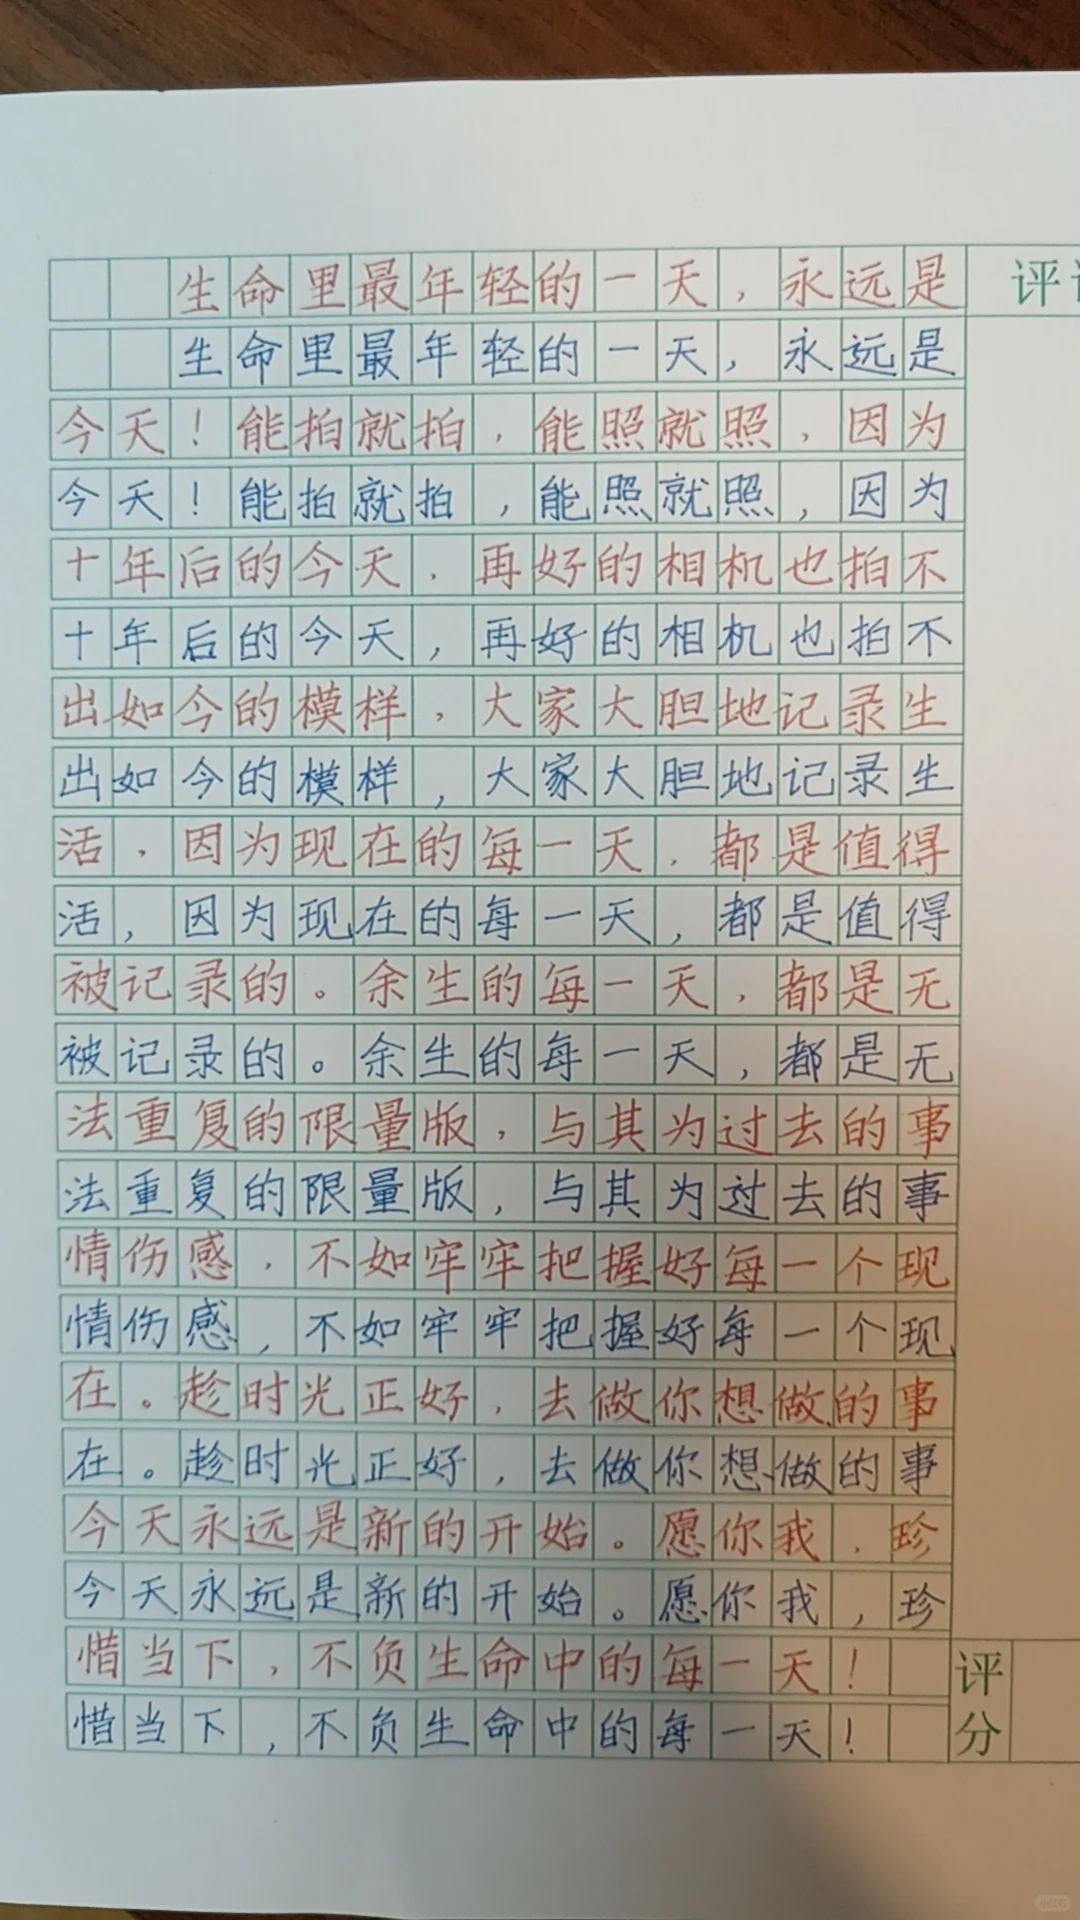 生命里最年轻的一天，永远是
生命里最年轻的一天，永远是
今天！能拍就拍，能照就照，因为
今天！能拍就拍，能照就照，因为
十年后的今天，再好的相机也拍不
十年后的今天，再好的相机也拍不
出如今的模样，大家大胆地记录生
出如今的模样，大家大胆地记录生
活，因为现在的每一天，都是值得
活，因为现在的每一天，都是值得
被记录的。余生的每一天，都是无
被记录的。余生的每一天，都是无
法重复的限量版，与其为过去的事
法重复的限量版，与其为过去的事
情伤感，不如牢牢把握好每一个现
情伤感，不如牢牢把握好每一个现
在。趁时光正好，去做你想做的事
在。趁时光正好，去做你想做的事
今天永远是新的开始。愿你我，珍
今天永远是新的开始。愿你我，珍
惜当下，不负生命中的每一天！
惜当下，不负生命中的每一天！
评
评
分